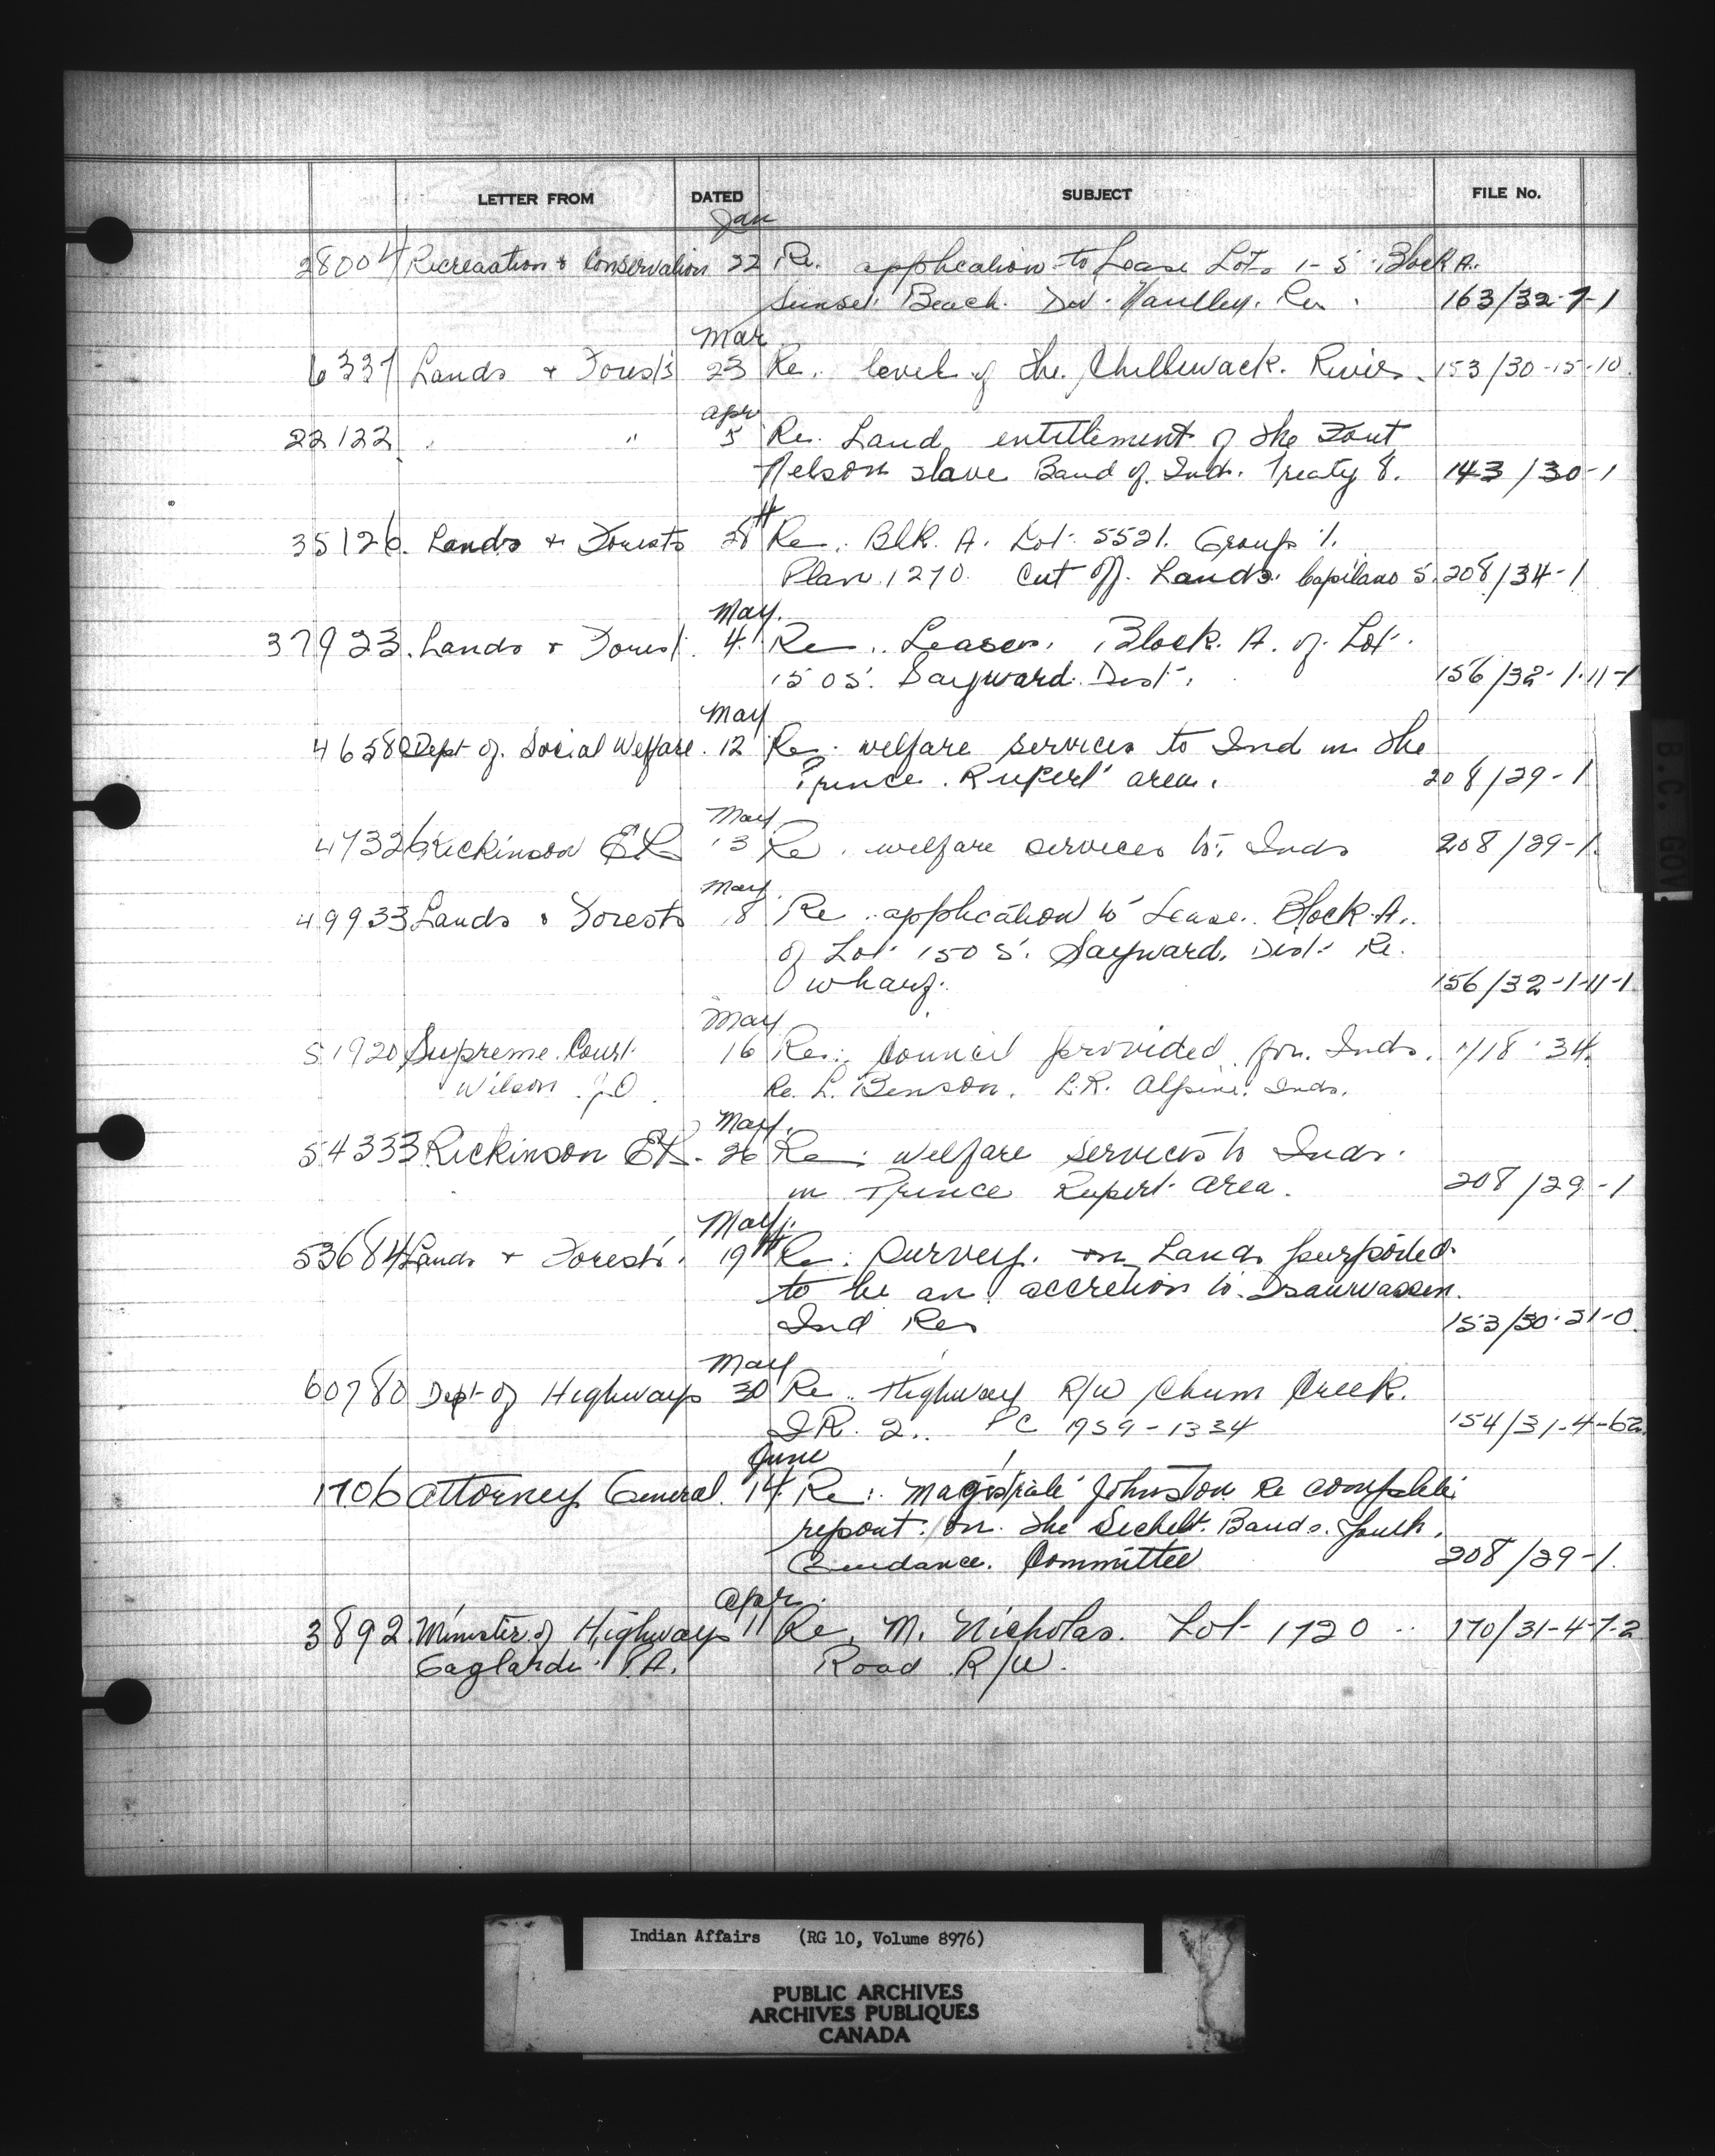 LETTER FROM DATED SUBJECT FILE No.
Jan
28004 Recreaation & Conservation 22 Re. application to Lease Lots 1-5 Block A.
Sunset Beach. Res. 163/32-7-1
Mar
6337 Lands & Forests 23 Re. level of the Chilliwack River. 153/30-15-10
Apr
22122 " " 5 Re. Land entitlement of the Fort
Nelson Slave Band of Inds. Treaty 8. 143/30-1
35126. Lands & Forests 28th Re. Blk. A. Lot 5521. Group 1.
Plan 1270. Cut off Lands. Capilano 5. 208/34-1
May.
37923. Lands & Forest. 4. Re. Leases. Block A. of Lot.
1505. Sayward Dist. 156/32-1-11-1
May
46580 Dept of Social Welfare. 12 Re. welfare services to Ind in the
Prince Rupert area. 208/29-1
May
47326 Rickinson E.L. 13 Re. welfare services to Inds 208/29-1.
May
49933 Lands & Forests 18 Re. application to Lease. Block A.
of Lot 1505. Sayward. Dist. Re.
wharf. 156/32-1-11-1
May
51920 Supreme Court 16 Re. Council provided for Inds. 1/18-34.
Wilson J.O. Re. L. Benson. L.R. Alpine. Inds.
May.
54333 Rickinson E.L. 26 Re. welfare services to Inds.
in Prince Rupert area. 208/29-1
May.
53684 Lands & Forests. 19th Re. Survey. on Lands purported
to be an accretion to Tsawwassen.
Ind Res 153/30-21-0
May
60780 Dept of Highways 30 Re. Highway R/W Chum Creek.
I.R. 2. PC 1959-1334 154/31-4-62
June
1706 Attorney General. 14 Re. Magistrate Johnston Re complete
report on the Sechelt Bands Youth.
Guidance. Committee 208/29-1.
Apr.
3892. Minister of Highways 11 Re. M. Nicholas. Lot 1720 170/31-4-7-2
Gaglardi. P.A. Road R/W.
B.C. GOV
Indian Affairs (RG 10, Volume 8976)
PUBLIC ARCHIVES
ARCHIVES PUBLIQUES
CANADA